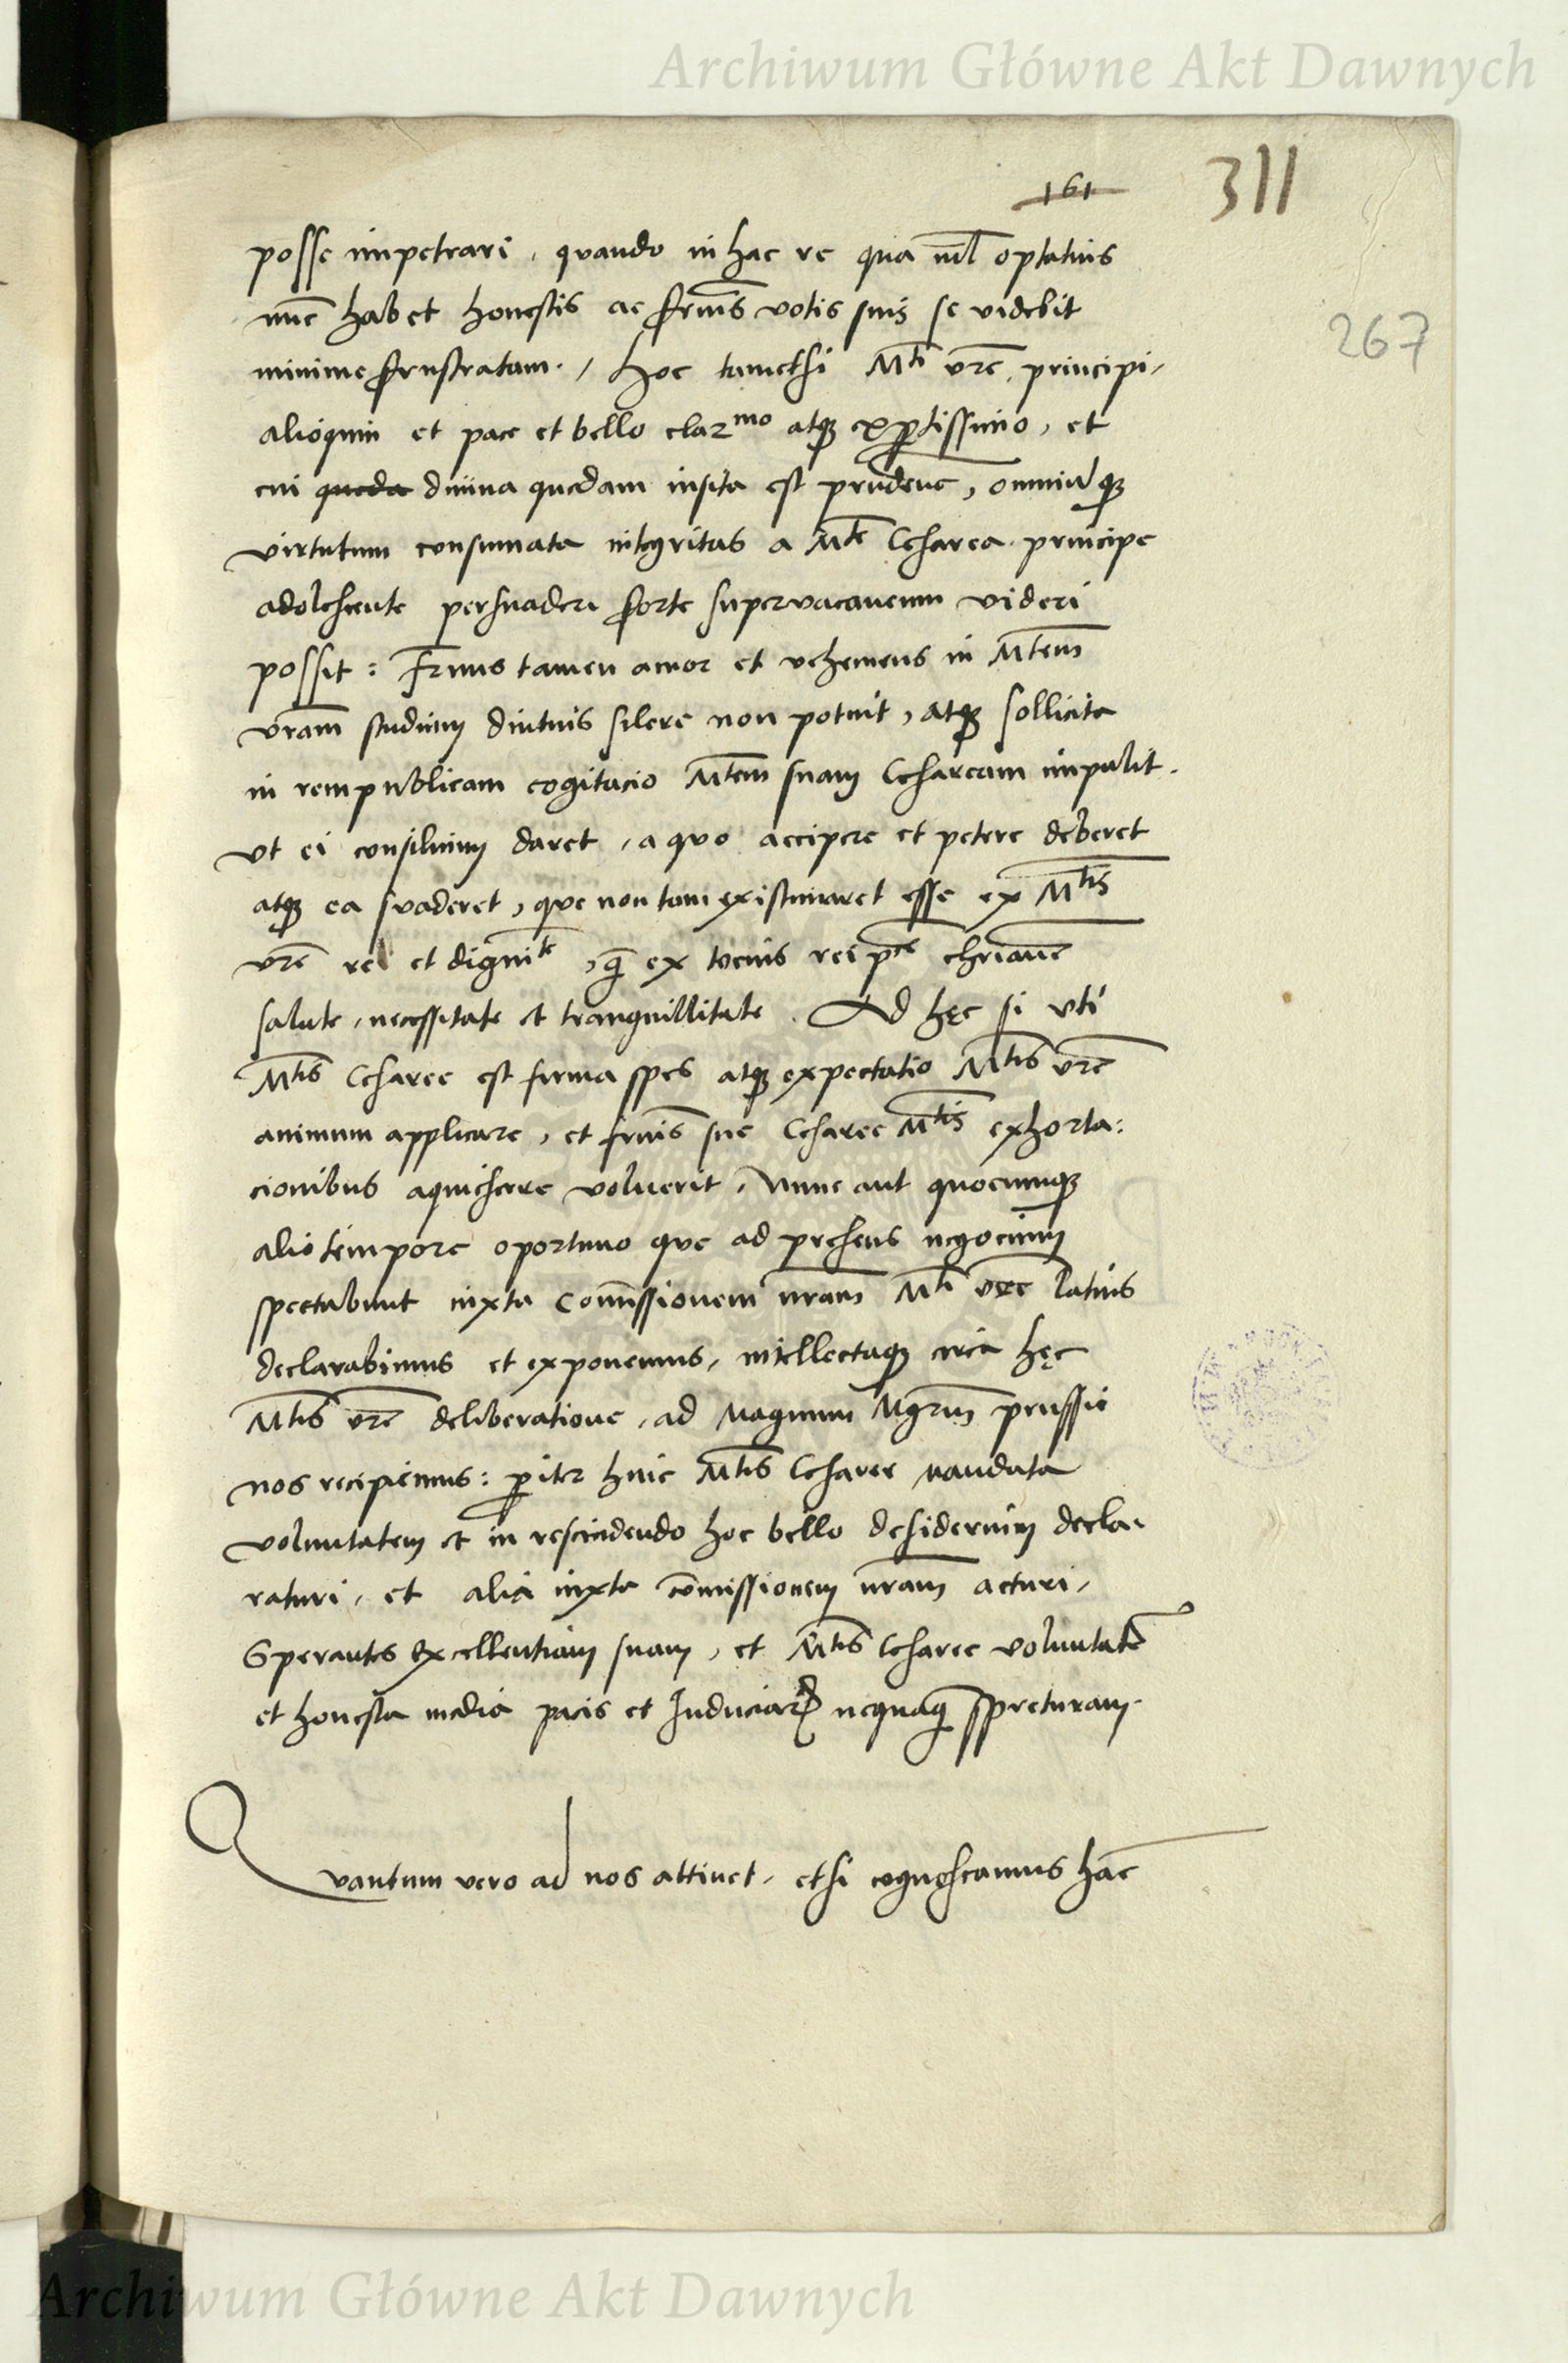 Archiwum Główne Akt Dawnych
161
311
267
posse impetrari, quando in hac re qua nil optatius
nūc habet honestis ac frnis votis suis se videbit
minime frustratam. / Hoc tametsi Mti vrē principi,
alioquin et pace et bello clarmo atq exptissimo, et
cui queda diuina quedam insita est prudentē, omniūq
virtutum consumata integritas a Mte Cesarea principe
adolescente persuaderi forte supervacaneum videri
possit: Frnus tamen amor et vehemens in Mtem
vram studium diutius silere non potuit, atq sollicita
in rempublicam cogitacio Mtem suam Cesaream impulit.
vt ei consilium daret, a quo accipere et petere deberet
atq ea suaderet, que non tam existimaret esse ex Mtis
vrē re et dignite, q ex tocius reipce chrianē
salute, necessitate et tranquillitate. Ad hęc si vti
Mtis Cesaree est firma spes atq expectatio Mtis vrē
animum applicare, et frnis sue Cesaree Mtis exhorta:
cionibus aquiescere voluerit, Nunc aut quocumq
alio tempore oportuno que ad presens negocium
spectabunt iuxta Comissionem nram Mti vrē latius
declarabimus et exponemus, intellectaq circa hęc
Mtis vrē deliberatione, ad Magnum Mgrm prussie
nos recipiemus: piter huic Mtis Cesaree mandata
voluntatem et in rescindendo hoc bello desiderium decla,
raturi, et alia iuxta comissionem nram acturi,
Sperantes Excellentiam suam, et Mtis Cesaree voluntatē
et honesta media pacis et Induciar nequaq spreturam.
Quantum vero ad nos attinet, etsi cognoscamus hāc
Archiwum Główne Akt Dawnych